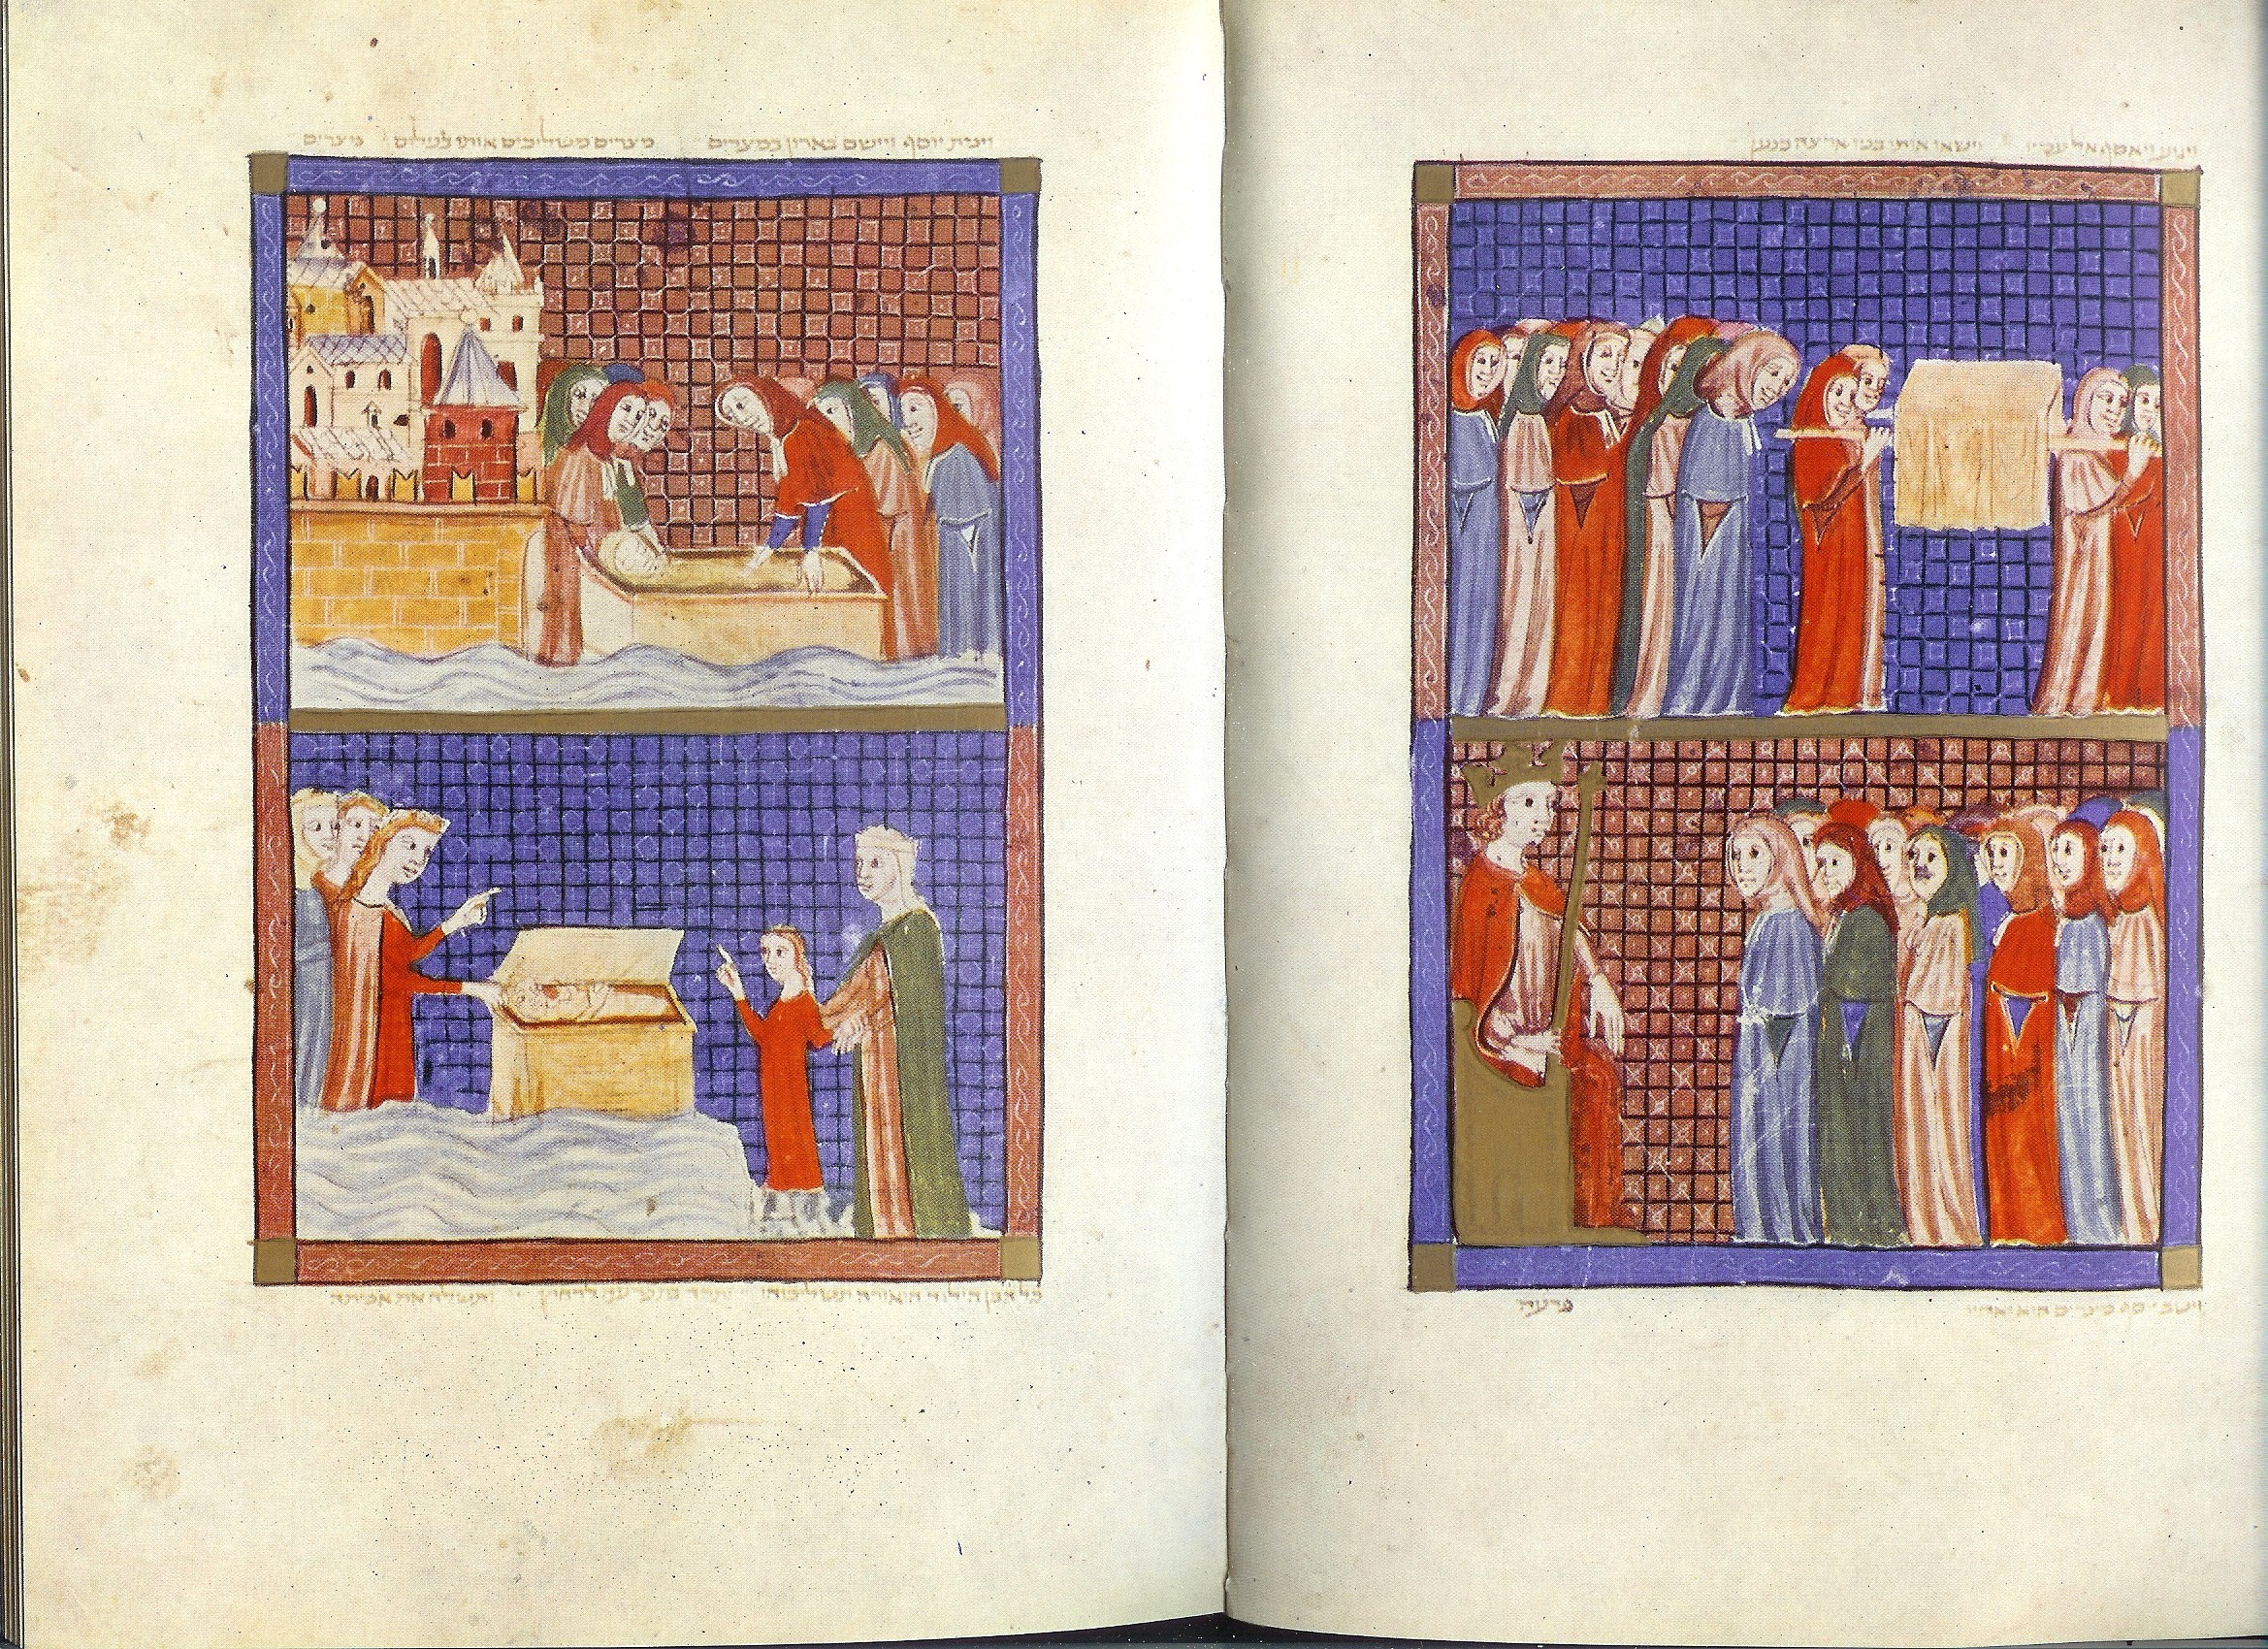 ויגוע ויאסף אל עמיו וישאו אותו בניו ארצה כנען
וישב יוסף מצרים הוא ואחיו פרעה
וימת יוסף ויישם בארון במצרים מצרים משליכים אותו לנילוס מצרים
כל הבן הילוד היאורה תשליכוהו ותרד בת פרעה לרחוץ ותשלח את אמתה